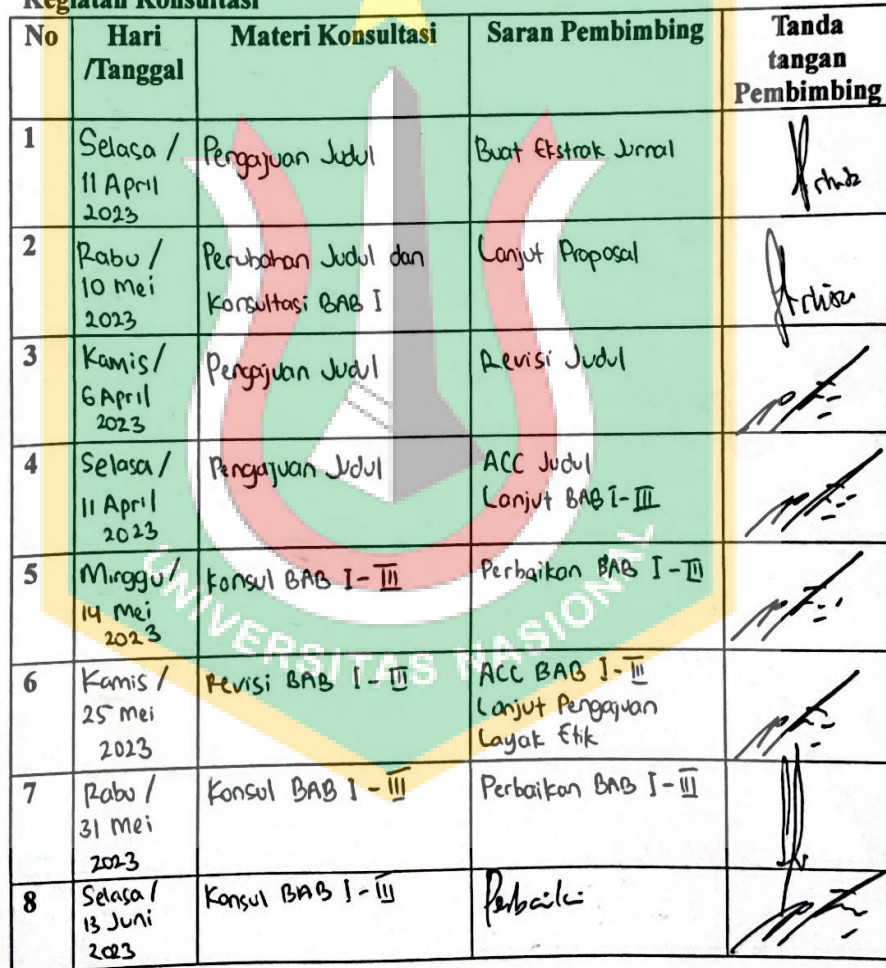 Kegiatan Konsultasi
No
Hari
/Tanggal
Materi Konsultasi
Saran Pembimbing
Tanda
tangan
Pembimbing
1
Selasa /
11 April
2023
Pengajuan Judul
Buat Ekstrak Jurnal
2
Rabu /
10 Mei
2023
Perubahan Judul dan
Konsultasi BAB I
Lanjut Proposal
3
Kamis /
6 April
2023
Pengajuan Judul
Revisi Judul
4
Selasa /
11 April
2023
Pengajuan Judul
ACC Judul
Lanjut BAB I-III
5
Minggu /
14 Mei
2023
Konsul BAB I-III
Perbaikan BAB I-III
6
Kamis /
25 Mei
2023
Revisi BAB I-III
ACC BAB I-III
Lanjut Pengajuan
Layak Etik
7
Rabu /
31 Mei
2023
Konsul BAB I-III
Perbaikan BAB I-III
8
Selasa /
13 Juni
2023
Konsul BAB I-III
Perbaiki
UNIVERSITAS NASIONAL